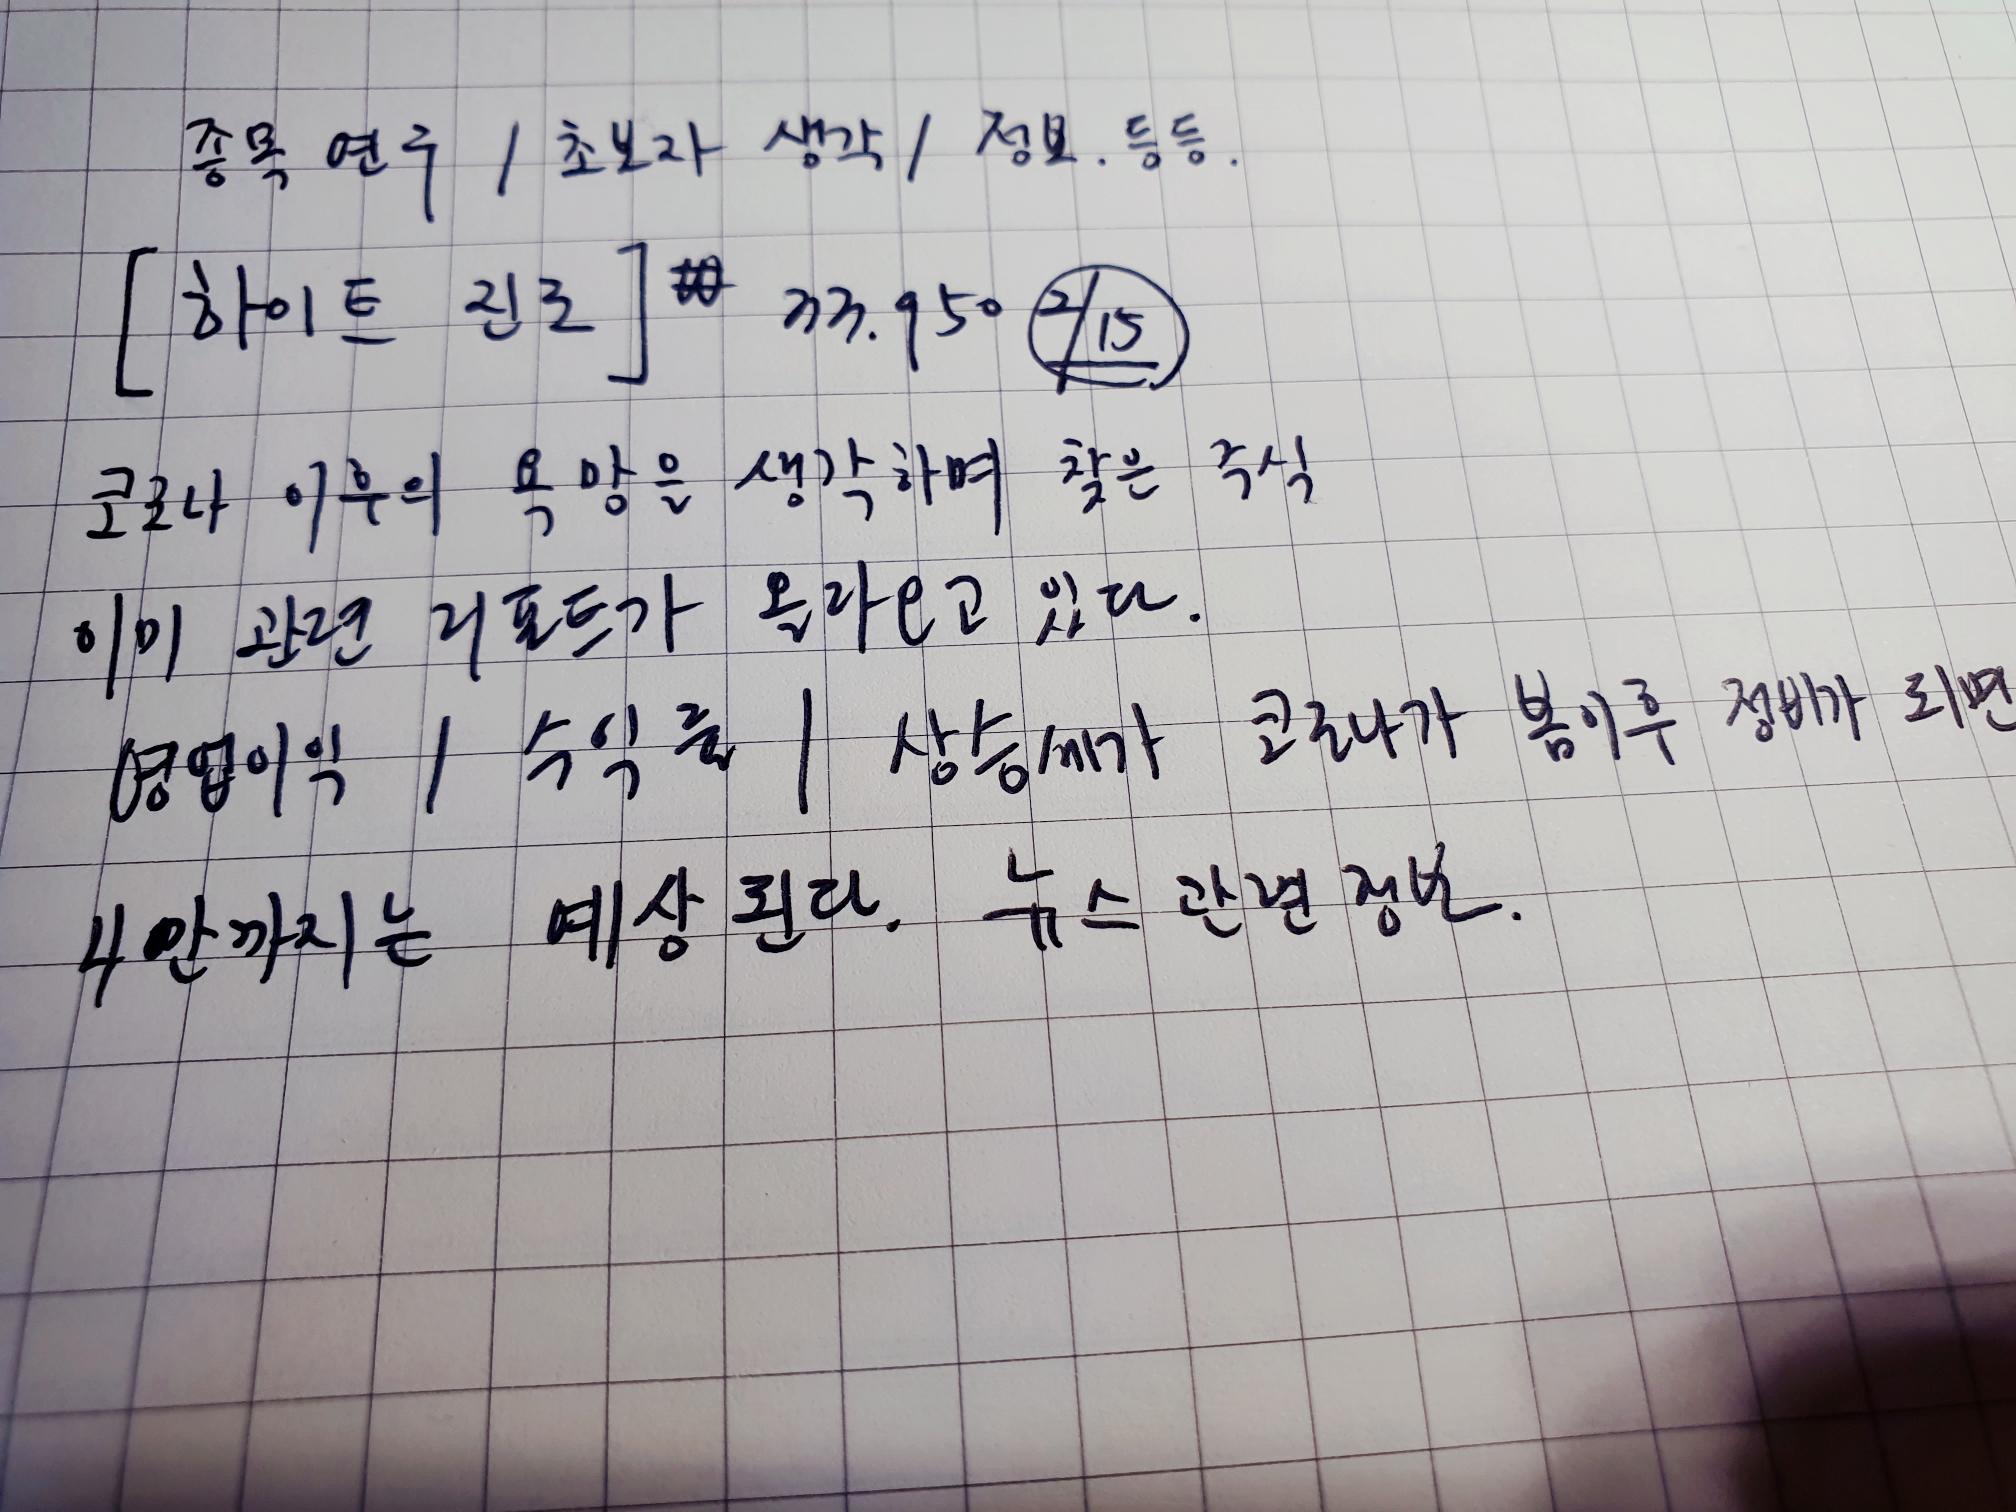 종목 연구 / 초보자 생각 / 정보. 등등.
[하이트 진로] 33.950 2/15
코로나 이후의 욕망을 생각하며 찾은 주식
이미 관련 리포트가 올라오고 있다.
영업이익 / 수익률 / 상승세가 코로나가 봄이후 정비가 되면
4만까지는 예상 된다. 뉴스 관련 정보.